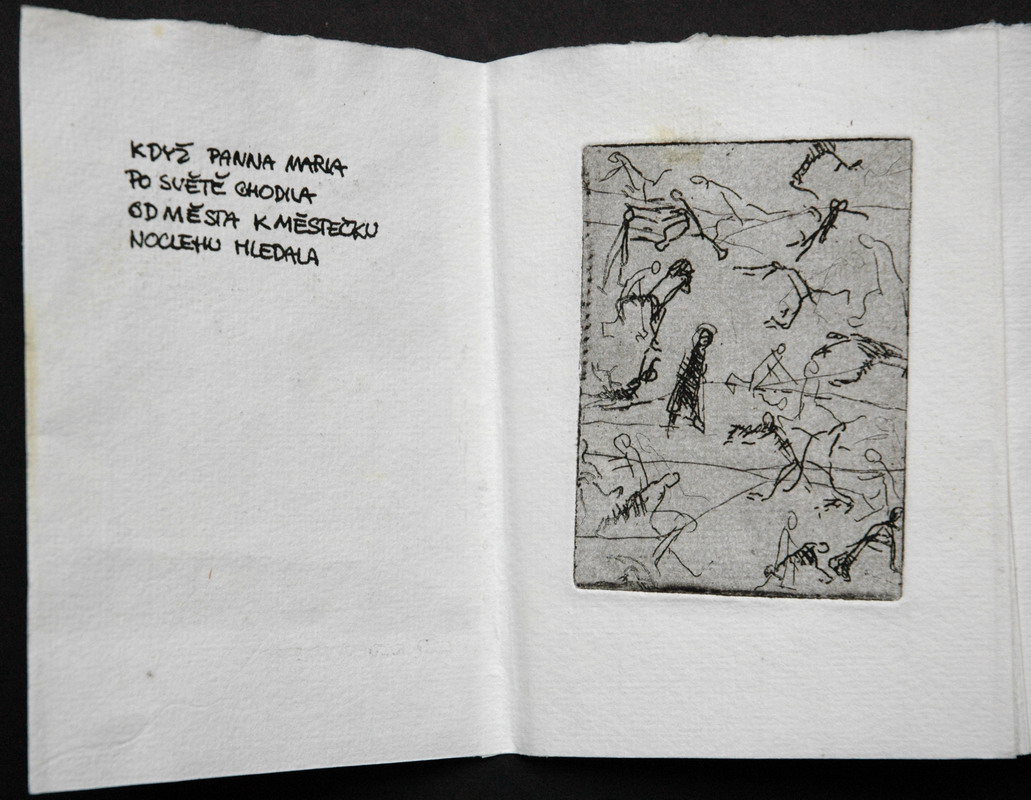 KDYŽ PANNA MARIA
PO SVĚTĚ CHODILA
OD MĚSTA K MĚSTEČKU
NOCLEHU HLEDALA